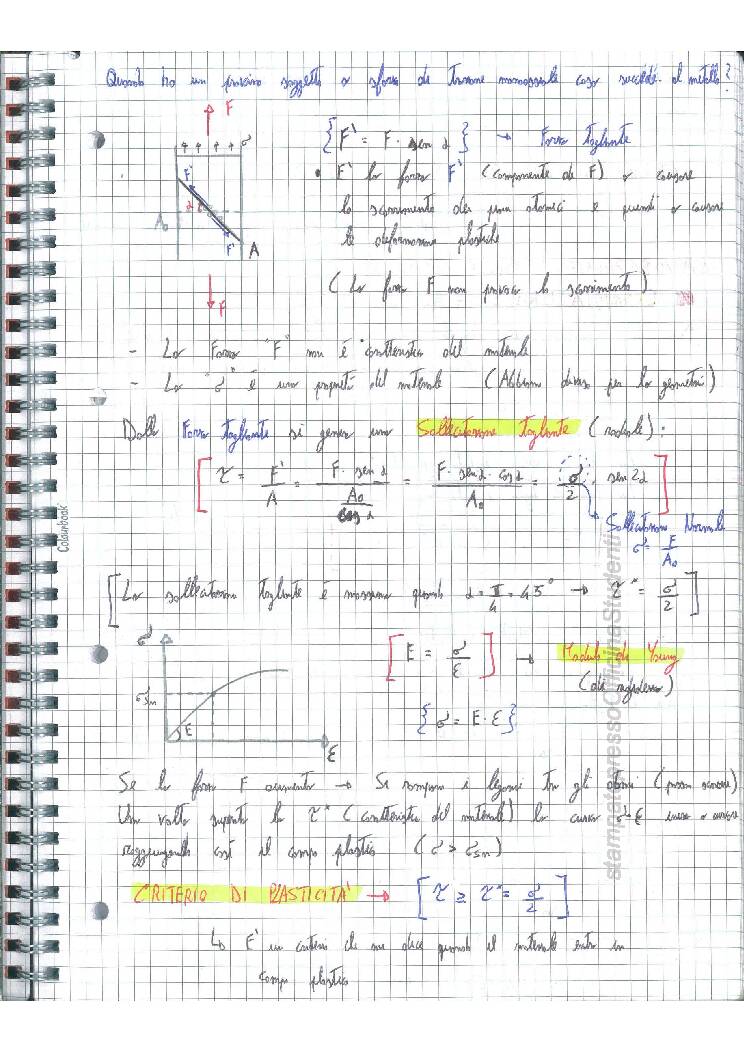 Quando ho un provino soggetto a sforzo di trazione monoassiale cosa succede al metallo?
F
σ
{F' = F · sen α} → Forza tagliente
F'
α
A₀
F'
A
F
• F' la forza F' (componente di F) a causare
lo scorrimento dei piani atomici e quindi a causare
le deformazioni plastiche
(La forza F non provoca lo scorrimento)
- La Forza "F" non è caratteristica del materiale
- La "σ" è una proprietà del materiale (Abbiamo diviso per la geometria)
Dalla Forza tagliante si genera una Sollecitazione Tagliante (radiale):
[τ = F'/A = F · sen α / (A₀/cos α) = F · sen α · cos α / A₀ = σ/2 · sen 2α]
Sollecitazione Normale
σ = F/A₀
[La sollecitazione tagliante è massima quando α = π/4 = 45° → τ* = σ/2]
σ
σsn
E
ε
[E = σ/ε] → Modulo di Young
(di rigidezza)
{σ = E · ε}
Se la forza F aumenta → Si rompono i legami tra gli atomi (piani scorrono)
Una volta superata la τ* (caratteristica del materiale) la curva σ-ε inizia a curvare
raggiungendo così il campo plastico (σ > σsn)
CRITERIO DI PLASTICITÀ → [τ ≥ τ* = σ/2]
↳ È un criterio che mi dice quando il materiale entra in
campo plastico
Colourbook
stampatopressoOfficinaStudenti